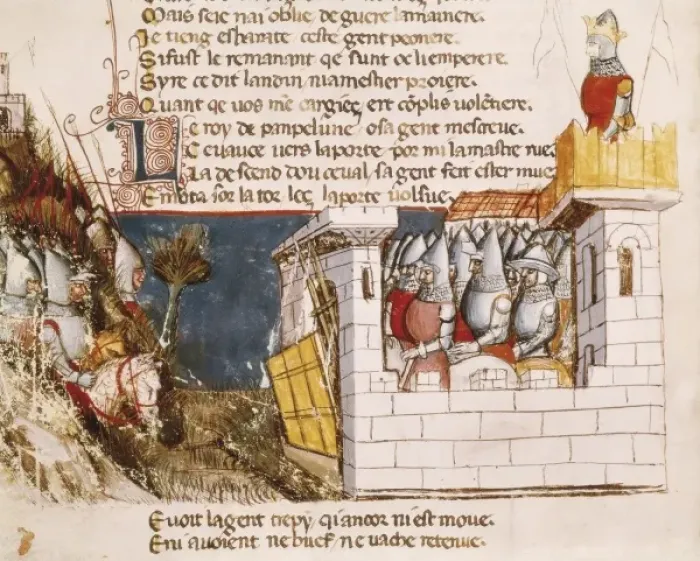 Mais seie nai oblie de guere la maniere.
Je tieng eshamite ceste gent peonere.
Si fust le remanant qe sunt oe li emperere.
Syre ce dit landin niamesher proiere.
Quant qe vos me cargiee ert cõplis volẽtiere.
Le roy de panpelune o sa gent mescreue.
Ce cuauce uers la porte por mi la mastre rue.
La descend dou ceval, sa gent feit ester mue
E mõta sor la tor lez la porte volsue.
E voit la gent trepy qi ancor ni est moue.
E ni avoient ne buef ne vache retenue.